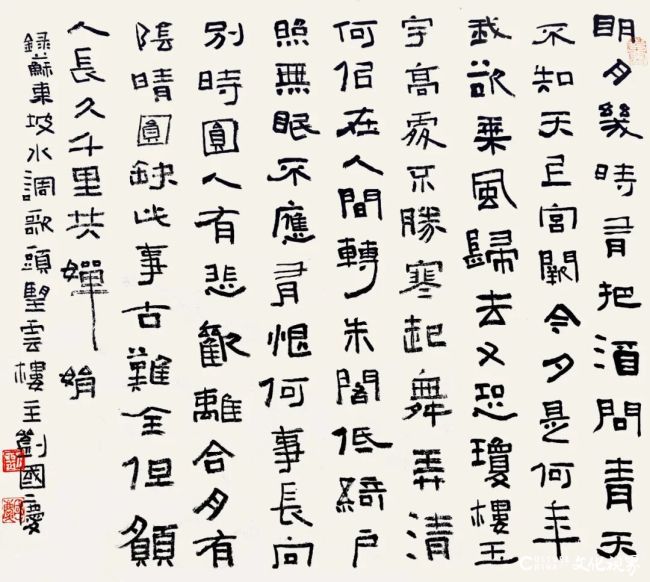 明月幾時有把酒問青天
不知天上宮闕今夕是何年
我欲乘風歸去又恐瓊樓玉
宇高處不勝寒起舞弄清
何似在人間轉朱閣低綺戶
照無眠不應有恨何事長向
別時圓人有悲歡離合月有
陰晴圓缺此事古難全但願
人長久千里共嬋娟
錄蘇東坡水調歌頭雲樓主劉國慶
文化视界